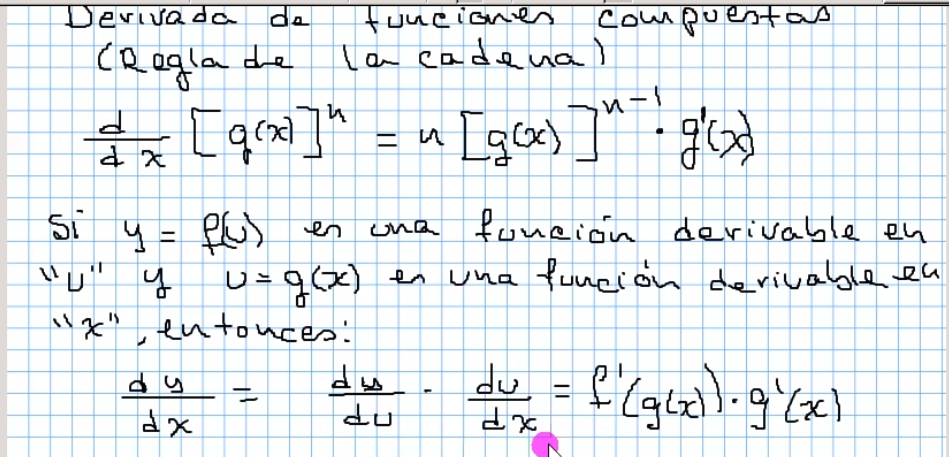 Derivada de funciones compuestas
(Regla de la cadena)
d/dx [g(x)]^n = n [g(x)]^(n-1) · g'(x)
Si y = f(u) es una función derivable en
"u" y u = g(x) es una función derivable en
"x", entonces:
dy/dx = dy/du · du/dx = f'(g(x)) · g'(x)